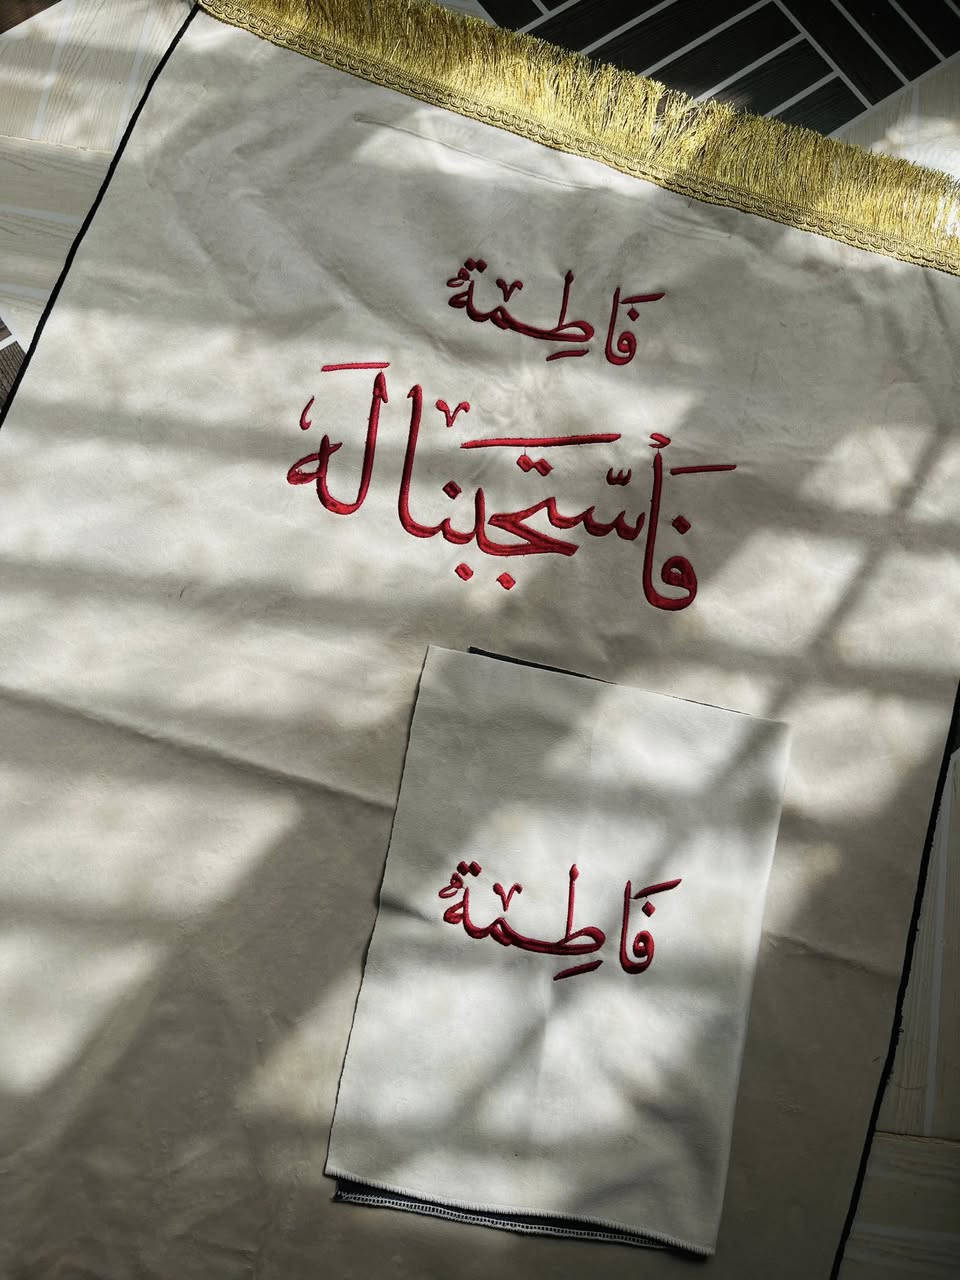 فَاطِمَةُ
فَاسْتَجَبْنَا لَهُ
فَاطِمَةُ